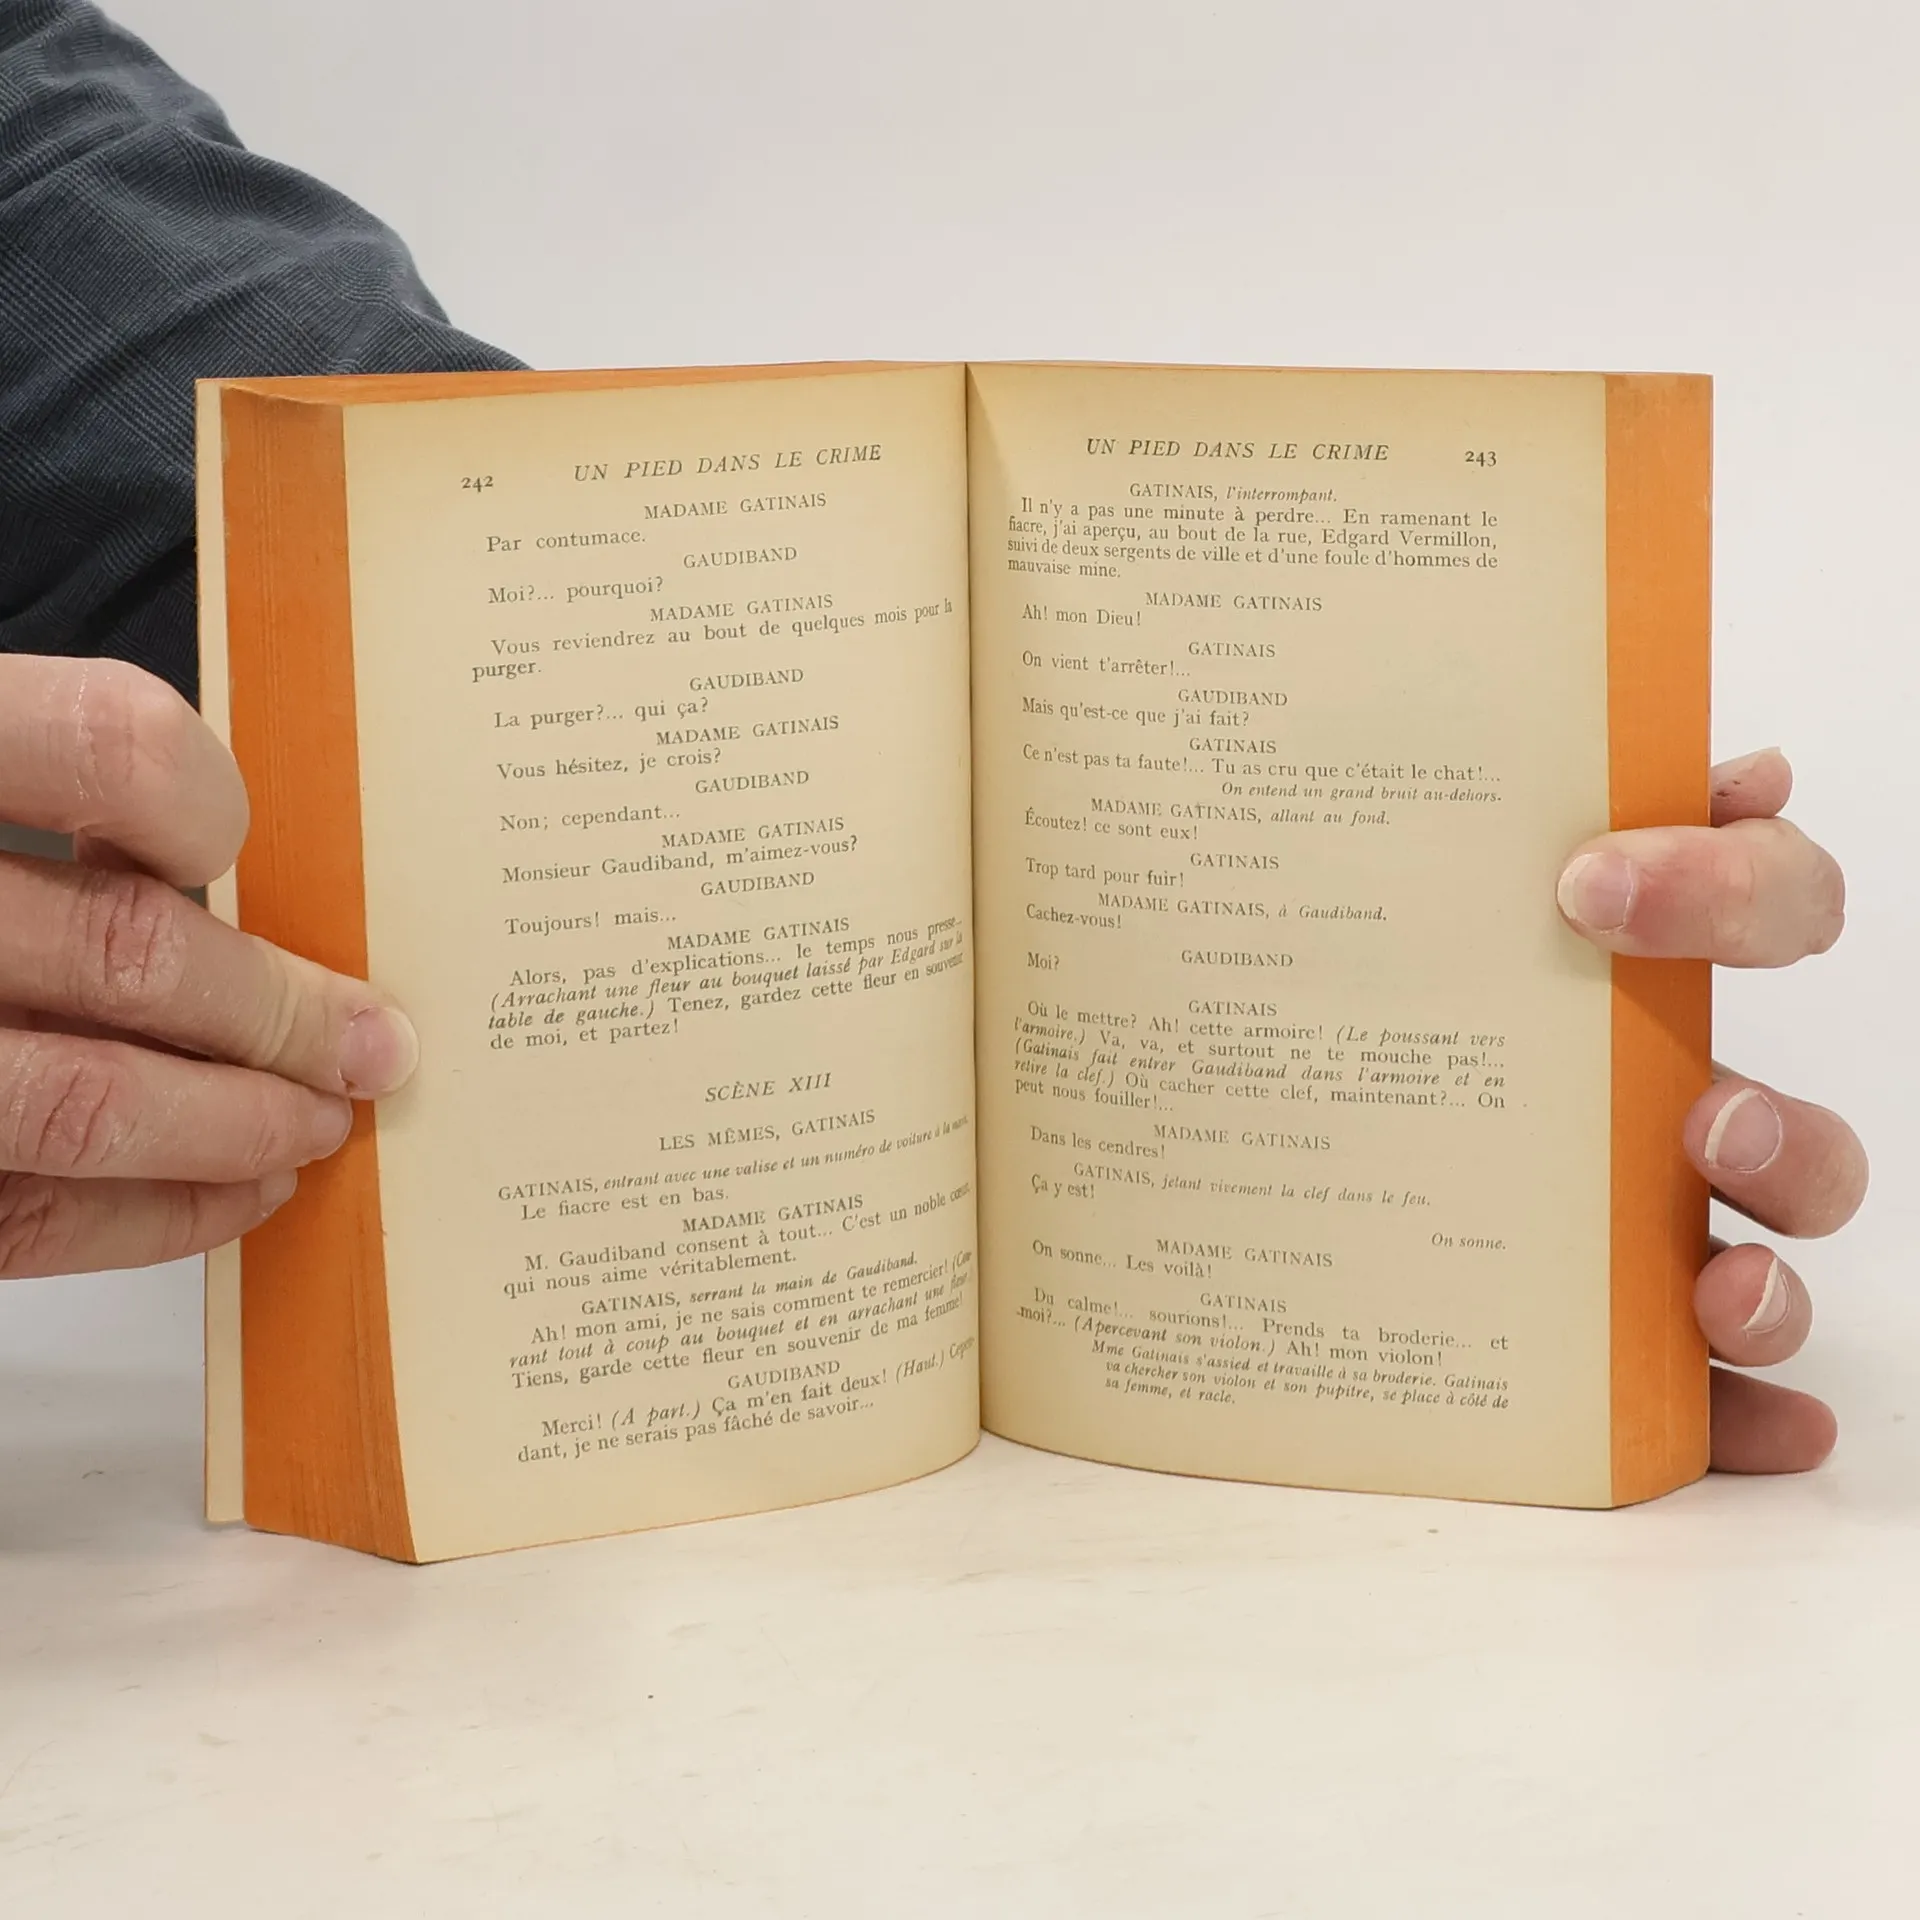 242
UN PIED DANS LE CRIME
MADAME GATINAIS
Par contumace.
GAUDIBAND
Moi?... pourquoi?
MADAME GATINAIS
Vous reviendrez au bout de quelques mois pour la
purger.
GAUDIBAND
La purger?... qui ça?
MADAME GATINAIS
Vous hésitez, je crois?
GAUDIBAND
Non; cependant...
MADAME GATINAIS
Monsieur Gaudiband, m'aimez-vous?
GAUDIBAND
Toujours! mais...
MADAME GATINAIS
Alors, pas d'explications... le temps nous presse...
(Arrachant une fleur au bouquet laissé par Edgard sur la
table de gauche.) Tenez, gardez cette fleur en souvenir
de moi, et partez!
SCÈNE XIII
LES MÊMES, GATINAIS
GATINAIS, entrant avec une valise et un numéro de voiture à la main.
Le fiacre est en bas.
MADAME GATINAIS
M. Gaudiband consent à tout... C'est un noble cœur,
qui nous aime véritablement.
GATINAIS, serrant la main de Gaudiband.
Ah! mon ami, je ne sais comment te remercier! (Cou-
rant tout à coup au bouquet et en arrachant une fleur.)
Tiens, garde cette fleur en souvenir de ma femme!
GAUDIBAND
Merci! (A part.) Ça m'en fait deux! (Haut.) Cepen-
dant, je ne serais pas fâché de savoir...
UN PIED DANS LE CRIME
243
GATINAIS, l'interrompant.
Il n'y a pas une minute à perdre... En ramenant le
fiacre, j'ai aperçu, au bout de la rue, Edgard Vermillon,
suivi de deux sergents de ville et d'une foule d'hommes de
mauvaise mine.
MADAME GATINAIS
Ah! mon Dieu!
GATINAIS
On vient t'arrêter!...
GAUDIBAND
Mais qu'est-ce que j'ai fait?
GATINAIS
Ce n'est pas ta faute!... Tu as cru que c'était le chat!...
On entend un grand bruit au-dehors.
MADAME GATINAIS, allant au fond.
Écoutez! ce sont eux!
GATINAIS
Trop tard pour fuir!
MADAME GATINAIS, à Gaudiband.
Cachez-vous!
GAUDIBAND
Moi?
GATINAIS
Où le mettre? Ah! cette armoire! (Le poussant vers
l'armoire.) Va, va, et surtout ne te mouche pas!...
(Gatinais fait entrer Gaudiband dans l'armoire et en
retire la clef.) Où cacher cette clef, maintenant?... On
peut nous fouiller!...
MADAME GATINAIS
Dans les cendres!
GATINAIS, jetant vivement la clef dans le feu.
Ça y est!
On sonne.
MADAME GATINAIS
On sonne... Les voilà!
GATINAIS
Du calme!... sourions!... Prends ta broderie... et
moi?... (Apercevant son violon.) Ah! mon violon!
Mme Gatinais s'assied et travaille à sa broderie. Gatinais
va chercher son violon et son pupitre, se place à côté de
sa femme, et racle.